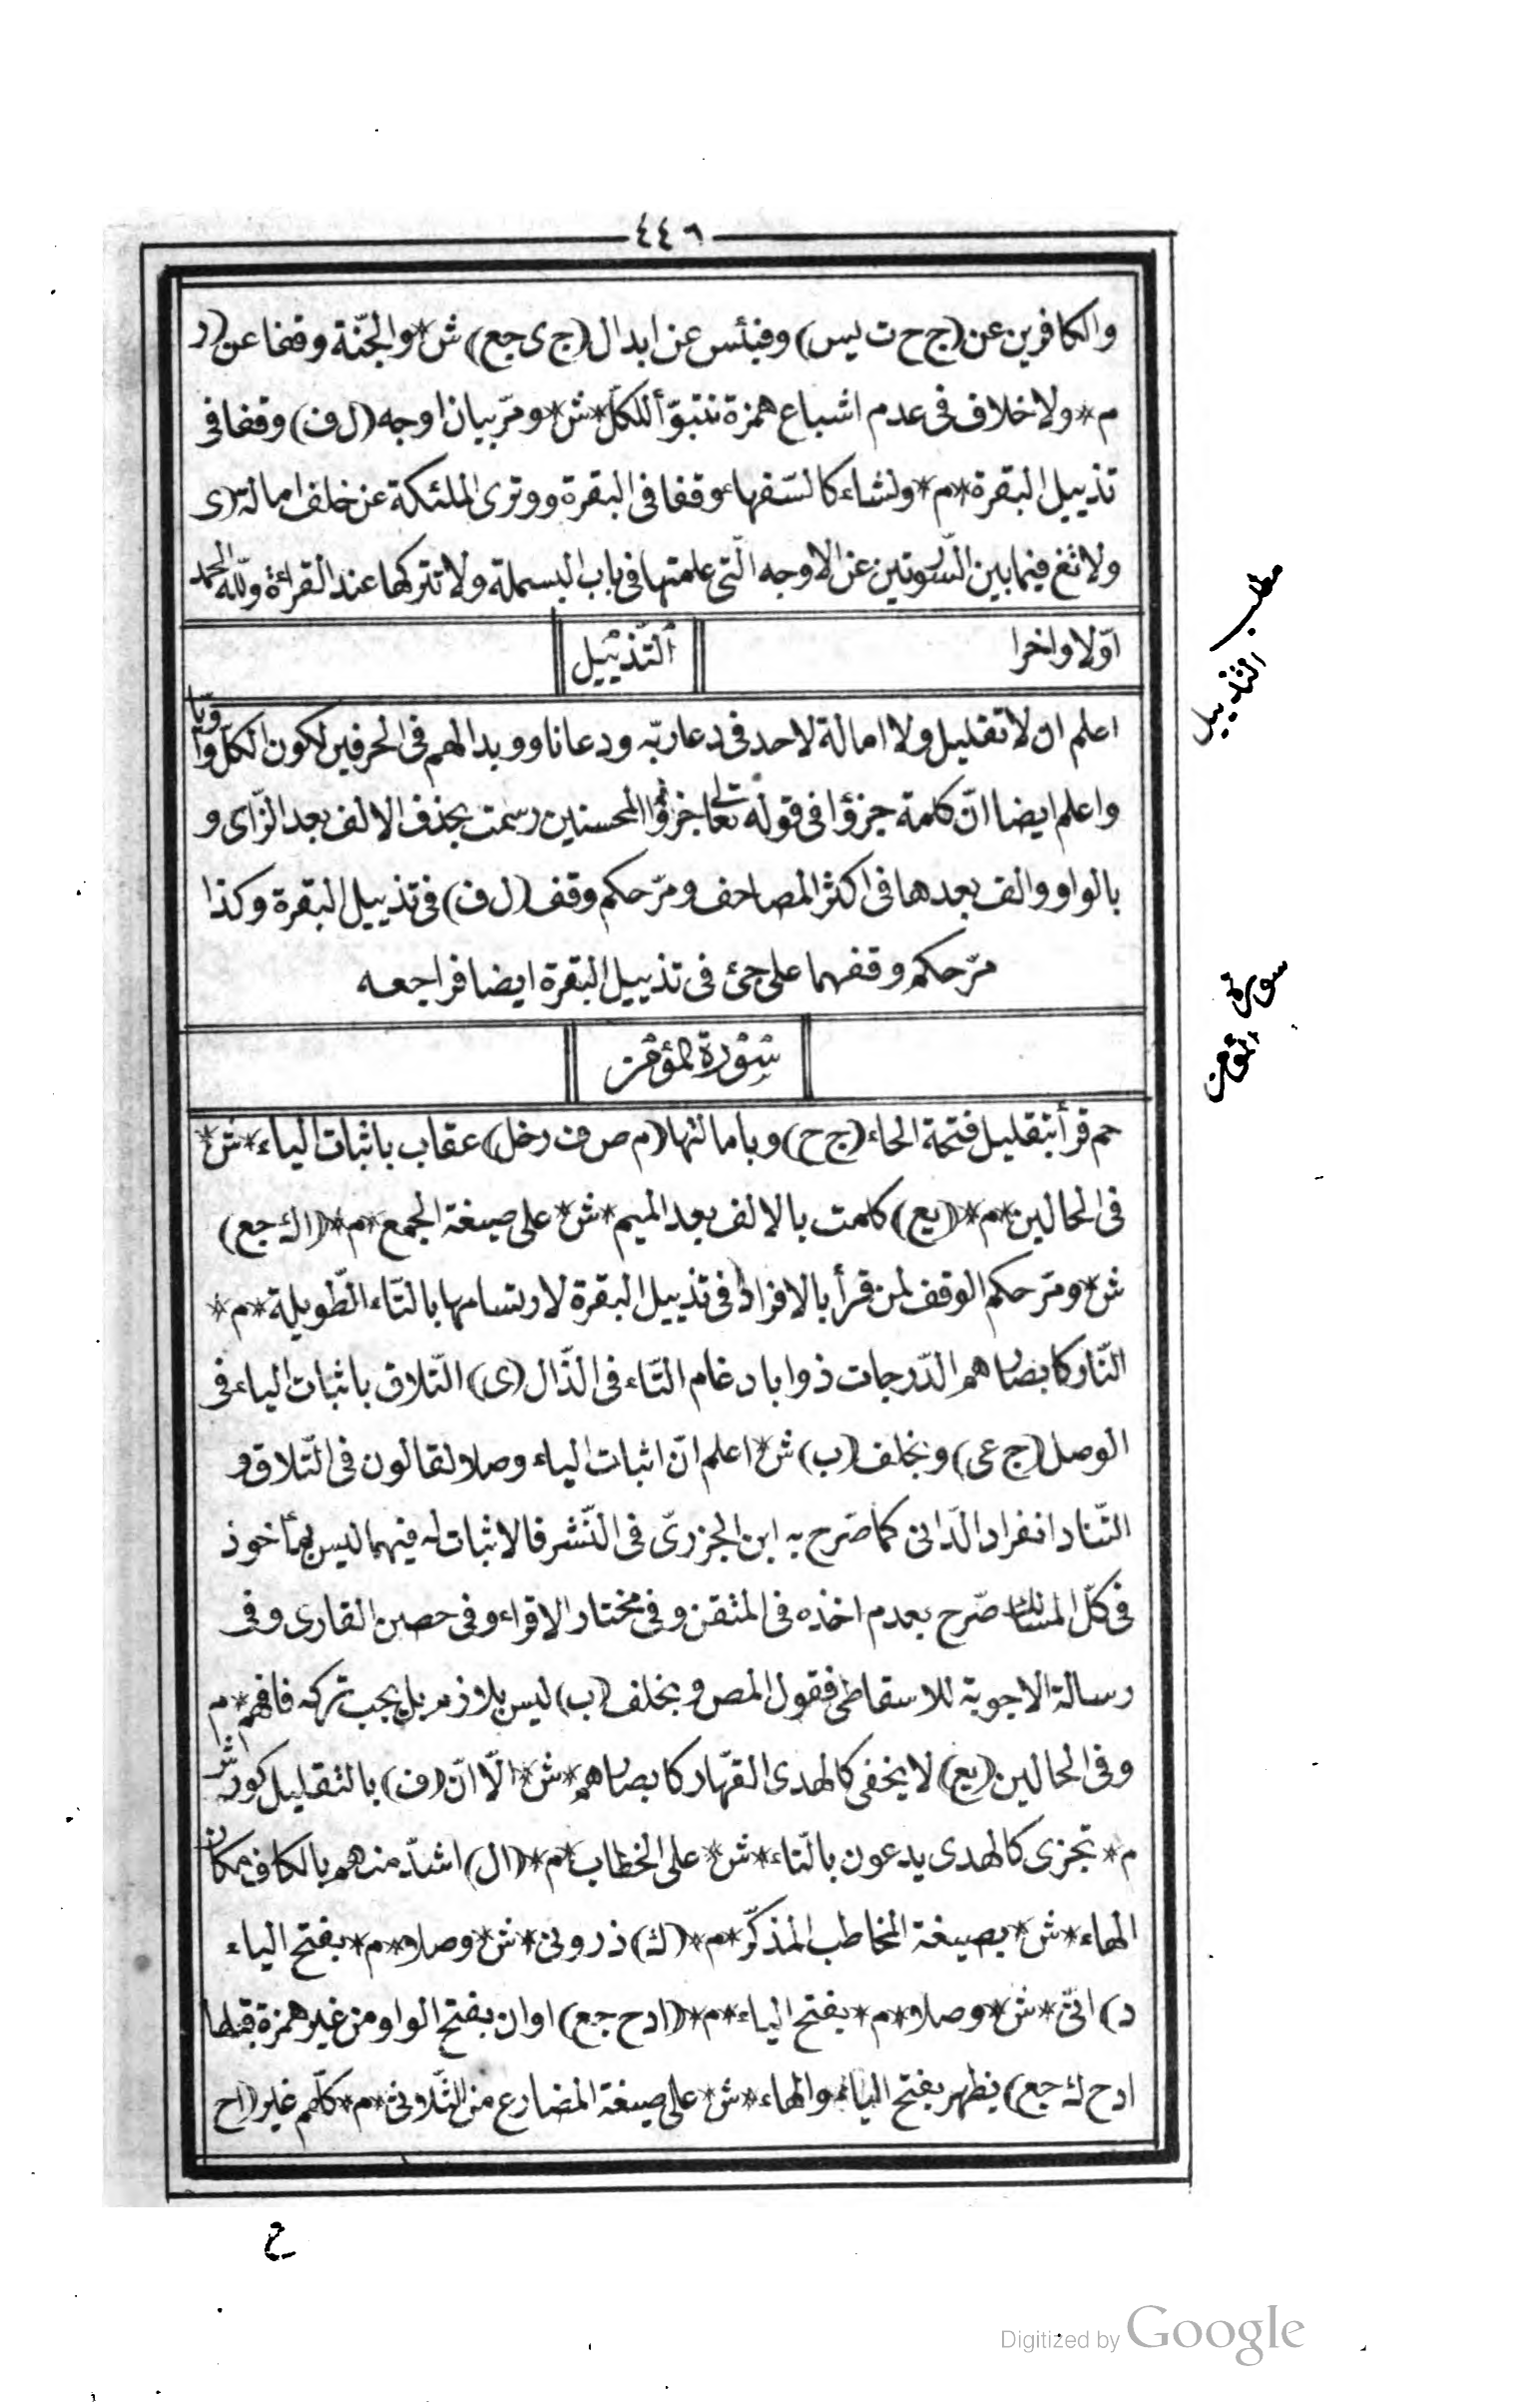 ٤٤٦
والكافرين عن (ج ح ت يس) وفبئس عن ابدال (ج ى جع) ش* والجنّة وقفا عن (ر
م* ولا خلاف فى عدم اشباع همزة نتبوّأ للكلّ* ش* ومرّ بيان اوجه (ل ف) وقفا فى
تذييل البقرة* م* ولشاء كالسّفهاء وقفا فى البقرة ووترى الملئكة عن خلف امالة (ى
ولا فيما بين السّورتين عن الاوجه الّتى علمتها فى باب البسملة ولا تتركها عند القراءة ولله الحمد
اوّلا واخرا
التّذييل
اعلم ان لا تقليل ولا امالة لاحد فى دعا ربّه ودعانا ووبدا لهم فى الحرفين لكون الكلّ واويّا
واعلم ايضا انّ كلمة جزؤا فى قوله تعالى جزؤا المحسنين رسمت بحذف الالف بعد الزّاى و
بالواو والف بعدها فى اكثر المصاحف ومرّ حكم وقف (ل ف) فى تذييل البقرة وكذا
مرّ حكم وقفهما على جئ فى تذييل البقرة ايضا فراجعه
سورة المؤمن
حم قرأ بتقليل فتحة الحاء (ج ح) وبامالتها (م ص ف ر خل) عقاب باثبات الياء* ش*
فى الحالين* م* (يع) كلمت بالالف بعد الميم* ش* على صيغة الجمع* م* (ا ك جع)
ش* ومرّ حكم الوقف لمن قرأ بالافراد فى تذييل البقرة لارتسامها بالتّاء الطّويلة* م*
النّار كابصارهم الدّرجات ذوا بادغام التّاء فى الذّال (ى) التّلاق باثبات الياء فى
الوصل (ج عى) وبخلف (ب) ش* اعلم انّ اثبات الياء وصلا لقالون فى التّلاق و
التّناد انفراد الدّانى كما صّرح به ابن الجزرىّ فى النّشر فالاثبات له فيهما ليس بمأخوذ
فى كلّ المسالك صّرح بعدم اخذه فى المتقن وفى مختار الاقراء وفى حصن القارى وفى
رسالة الاجوبة للاسقاطى فقول المص وبخلف (ب) ليس بلازم بل يجب تركه فافهم* م
وفى الحالين (يع) لا يخفى كالهدى القهّار كابصارهم* ش* الّا انّ (ف) بالتقليل كورشٍ
م* تجزى كالهدى يدعون بالتّاء* ش* على الخطاب* م* (ا ل) اشدّ منهم بالكاف مكان
الهاء* ش* بصيغة المخاطب المذكّر* م* (ك) ذرونى* ش* وصلا* م* بفتح الياء
د) انّى* ش* وصلا* م* بفتح الياء* م* (ا د ح جع) اوان بفتح الواو من غير همزة قبلها
ا د ح ك جع) يظهر بفتح الياء والهاء* ش* على صيغة المضارع من الثّلاثى* م* كلّهم غير (ا ح
مطلب
التذييل
سورة
المؤمن
ع
Digitized by Google